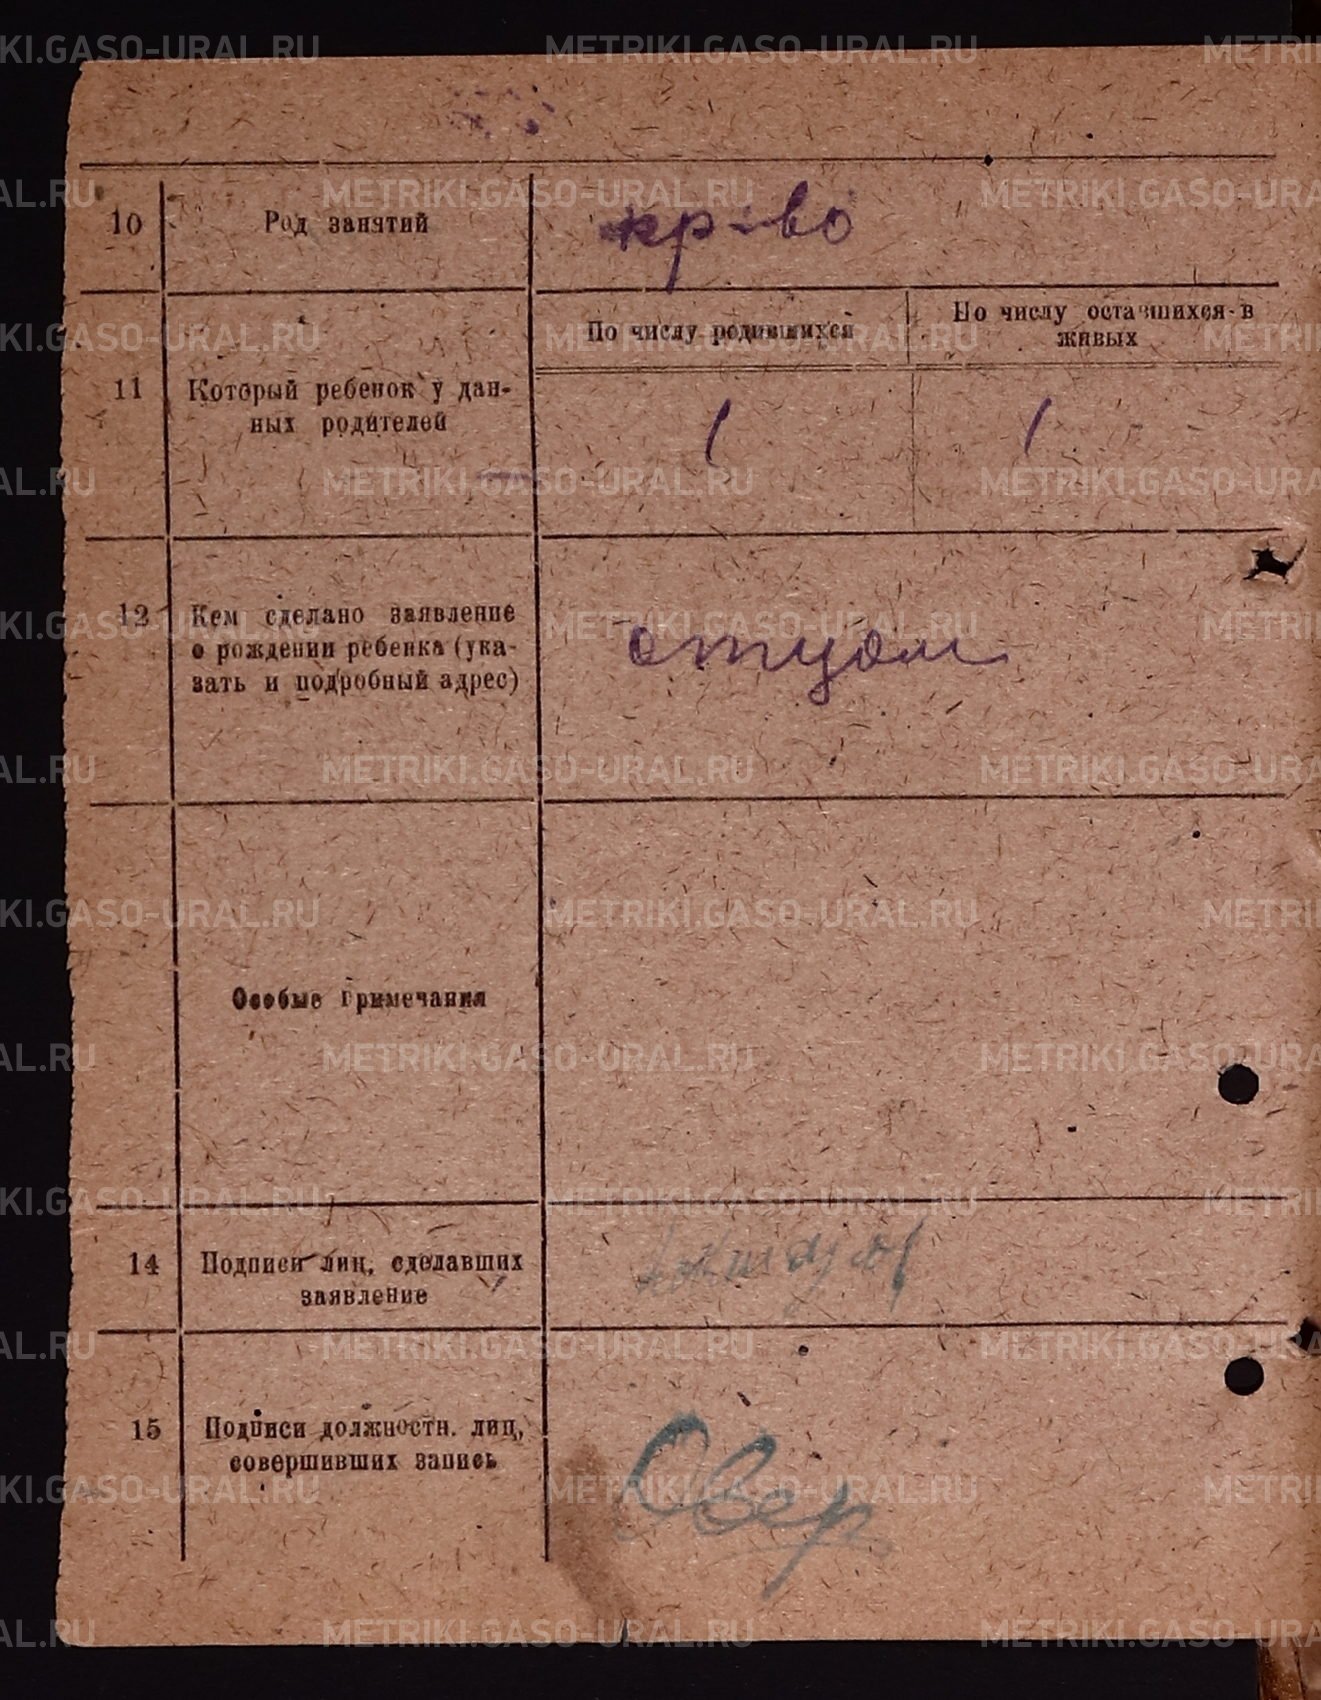 10 Род занятий кр-во
По числу родившихся По числу оставшихся в
живых
11 Который ребенок у дан-
ных родителей
1 1
12 Кем сделано заявление
о рождении ребенка (ука-
зать и подробный адрес)
отцом
Особые примечания
14 Подписи лиц, сделавших
заявление
15 Подписи должностн. лиц,
совершивших запись
METRIKI.GASO-URAL.RU